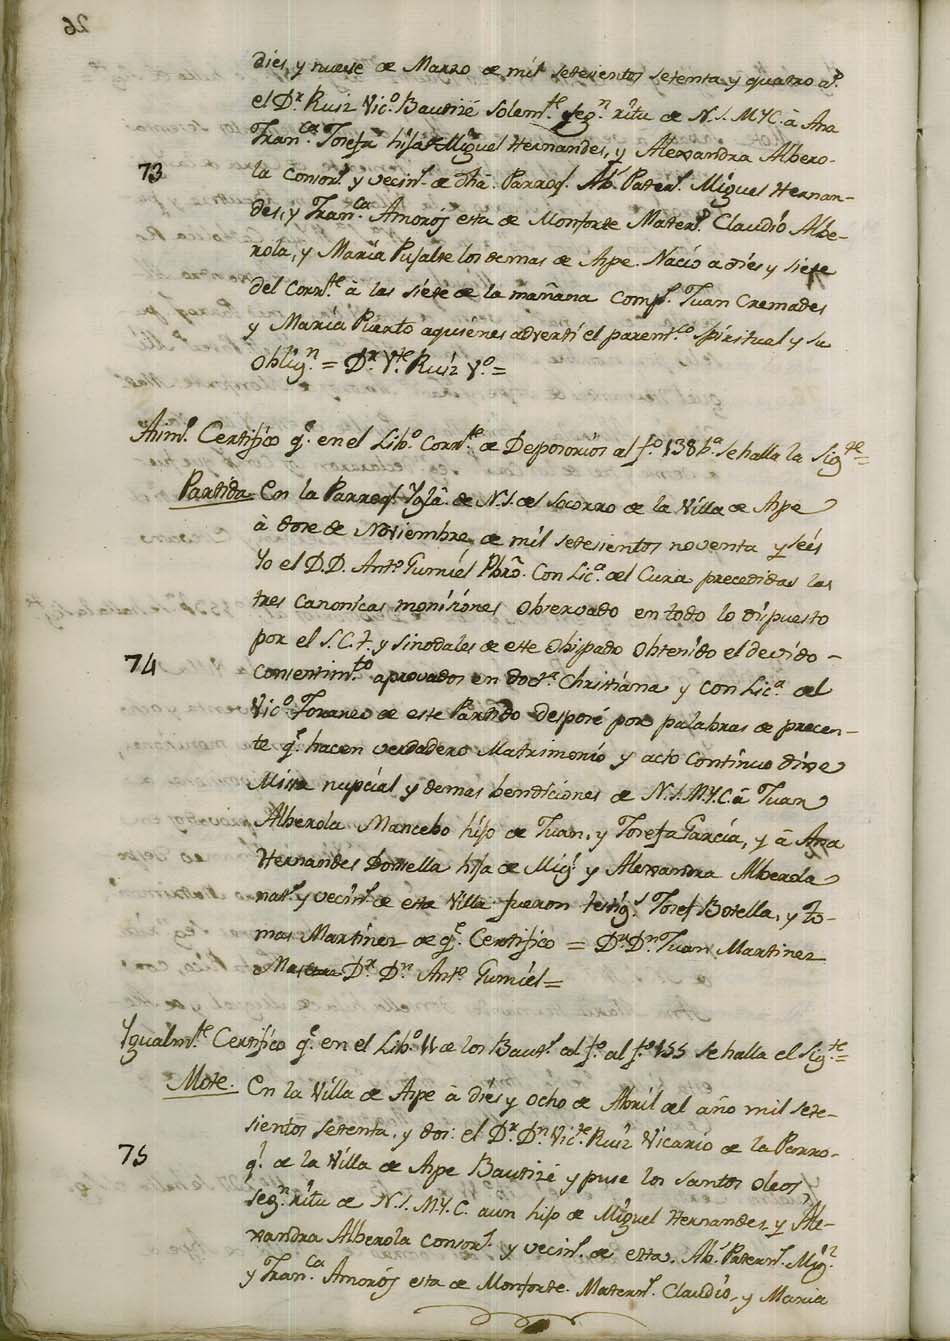 26
dies, y nueve de Marzo de mil setesientos setenta y quatro a.s
el D.r Ruiz Vic.o Bautizé Solem.te seg.n ritu de N.S.M.Y.C. à Ana
Fran.ca Josefa hija de Miguel Hernandes, y Alexandra Albero-
73
la Consor.s y vecin.s de dhã. Parroq.l Ab.s Pater.s Miguel Hernan-
des, y Fran.ca Amorós esta de Monforte Mater.s Claudio Albe-
rola, y Maria Pujalte los demas de Aspe. Nació a dies y siete
del Corr.te à las siete de la mañana Comp.s Juan Cremades
y Maria Puerto aquienes advertí el parent.co Spiritual y su
Oblig.n = D.r V.te Ruiz V.o =
Asim.o Certifico q.e en el Lib.o Corr.te de Desposorios al f.o 138 b.a se halla la Sig.te =
Partida En la Parroq.l Yglã. de N.S. del Socorro de la Villa de Aspe
à dose de Noviembre de mil setesientos noventa y seis
Yo el D.D. Ant.o Gumiel Pbrõ. Con Lic.a del Curia precedidas las
tres Canonicas moniziones Observado en todo lo dispuesto
por el S.C.T. y Sinodales de este Obispado Obtenido el devido -
74
Consentim.to aprovados en doct.a Christiana y con Lic.a del
Vic.o Foraneo de este Partido desposé por palabras de precen-
te q.e hacen verdadero Matrimonio y acto Continuo dixe
Missa nupcial y demas bendiciones de N.S.M.Y.C. à Juan
Alberola Mancebo hijo de Juan, y Josefa Garcia, y à Ana
Hernandes Donsella hija de Mig.l y Alexandra Alberola
nat.s y vecin.s de esta Villa fueron testig.s Josef Botella, y To-
mas Martinez de q.e Certifico = D.r D.n Juan Martinez
D.r D.n Ant.o Gumiel =
Ygualm.te Certifico q.e en el Lib.o 11 de los Baut.s al f.o al f.o 155 se halla el Sig.te =
Mote. En la Villa de Aspe à dies y ocho de Abril del año mil sete-
sientos setenta, y dos: el D.r D.n Vic.te Ruiz Vicario de la Parro-
75
q.l de la Villa de Aspe Bautizé y puse los santos oleos,
seg.n ritu de N.S.M.Y.C. aun hijo de Miguel Hernandez y Ale-
xandra Alberola Consor.s y vecin.s de esta. Ab.s Patern.s Mig.l
y Fran.ca Amorós esta de Monforte. Matern.s Claudio, y Maria